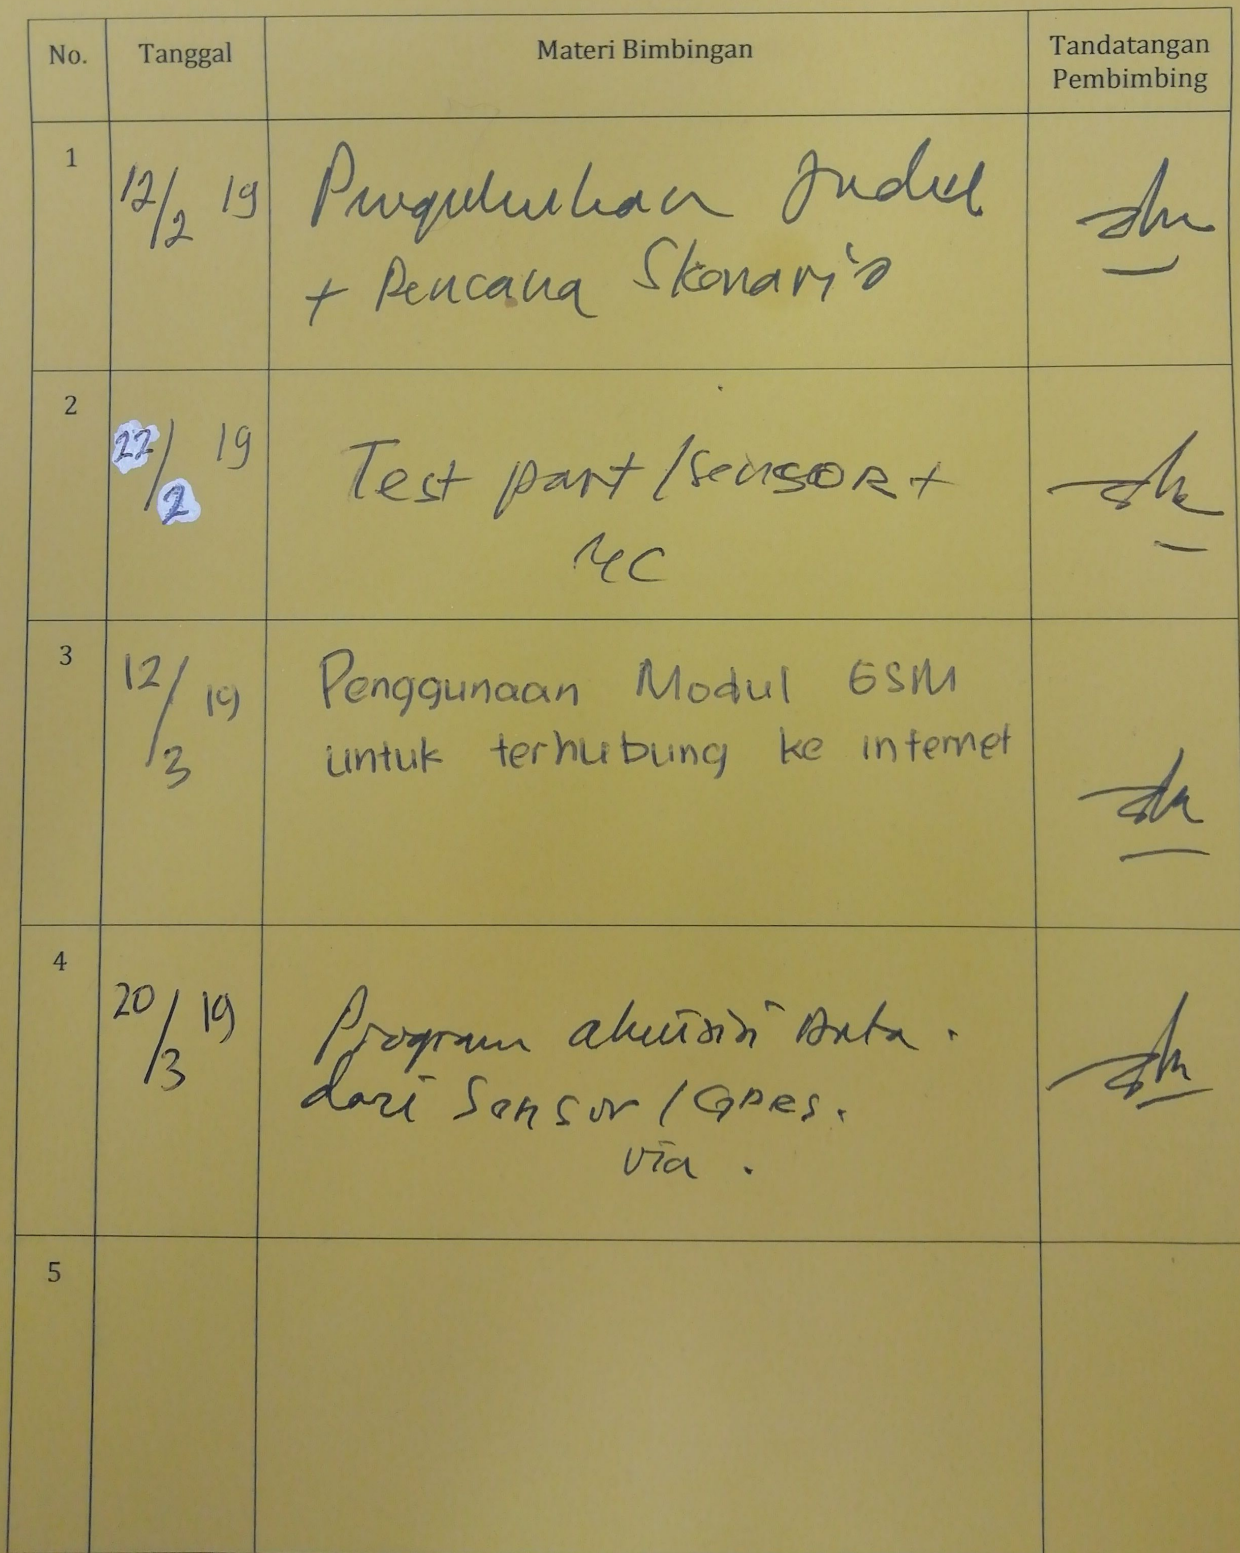 No. Tanggal Materi Bimbingan Tandatangan
Pembimbing
1
12/2 19 Pengukuhan Judul
+ Rencana Skenario
2
22/2 19 Test part/sensor +
MC
3
12/3 19 Penggunaan Modul GSM
untuk terhubung ke internet
4
20/3 19 Program akuisisi Data.
dari Sensor / GPRS.
via.
5